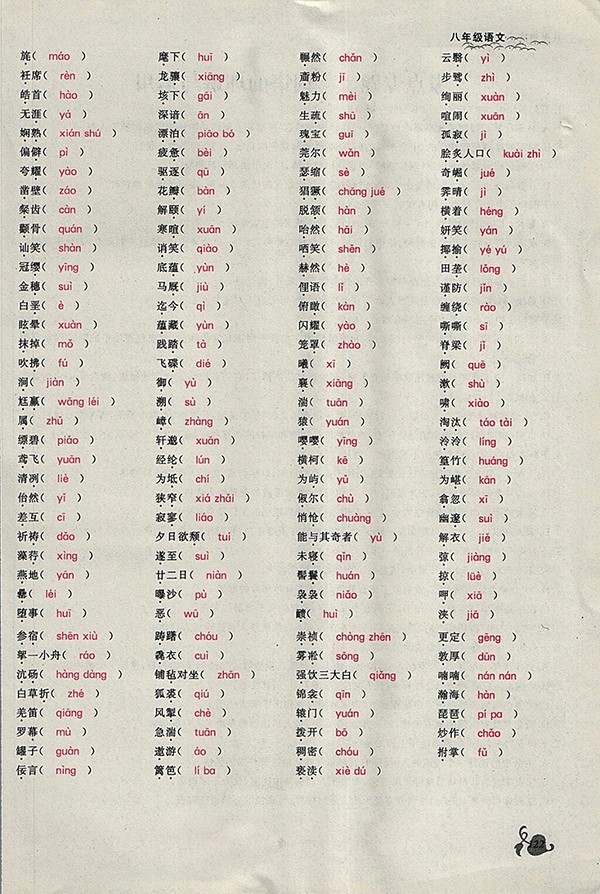 八年级语文
旄（ máo ） 麾下（ huī ） 冁然（ chǎn ） 云翳（ yì ）
衽席（ rèn ） 龙骧（ xiāng ） 齑粉（ jī ） 步骘（ zhì ）
皓首（ hào ） 垓下（ gāi ） 魅力（ mèi ） 绚丽（ xuàn ）
无涯（ yá ） 深谙（ ān ） 生疏（ shū ） 喧闹（ xuān ）
娴熟（ xián shú ） 漂泊（ piāo bó ） 瑰宝（ guī ） 孤寂（ jì ）
偏僻（ pì ） 疲惫（ bèi ） 莞尔（ wǎn ） 脍炙人口（ kuài zhì ）
夸耀（ yào ） 驱逐（ qū ） 瑟缩（ sè ） 奇崛（ jué ）
凿壁（ záo ） 花瓣（ bàn ） 猖獗（ chāng jué ） 霁晴（ jì ）
粲齿（ càn ） 解颐（ yí ） 脱颔（ hàn ） 横着（ héng ）
颧骨（ quán ） 寒暄（ xuān ） 咍然（ hāi ） 妍笑（ yán ）
讪笑（ shàn ） 诮笑（ qiào ） 哂笑（ shěn ） 揶揄（ yé yú ）
冠缨（ yīng ） 底蕴（ yùn ） 赫然（ hè ） 田垄（ lǒng ）
金穗（ suì ） 马厩（ jiù ） 俚语（ lǐ ） 谨防（ jǐn ）
白垩（ è ） 迄今（ qì ） 俯瞰（ kàn ） 缠绕（ rào ）
眩晕（ xuàn ） 蕴藏（ yùn ） 闪耀（ yào ） 嘶嘶（ sī ）
抹掉（ mǒ ） 践踏（ tà ） 笼罩（ zhào ） 脊梁（ jǐ ）
吹拂（ fú ） 飞碟（ dié ） 曦（ xī ） 阙（ quē ）
涧（ jiàn ） 御（ yù ） 襄（ xiāng ） 漱（ shù ）
尪羸（ wāng léi ） 溯（ sù ） 湍（ tuān ） 啸（ xiào ）
属（ zhǔ ） 嶂（ zhàng ） 猿（ yuán ） 淘汰（ táo tài ）
缥碧（ piǎo ） 轩邈（ xuān ） 嘤嘤（ yīng ） 泠泠（ líng ）
鸢飞（ yuān ） 经纶（ lún ） 横柯（ kē ） 篁竹（ huáng ）
清冽（ liè ） 为坻（ chí ） 为屿（ yǔ ） 为嵁（ kān ）
佁然（ yǐ ） 狭窄（ xiá zhǎi ） 俶尔（ chù ） 翕忽（ xī ）
差互（ cī ） 寂寥（ liáo ） 悄怆（ chuàng ） 幽邃（ suì ）
祈祷（ dǎo ） 夕日欲颓（ tuí ） 能与其奇者（ yù ） 解衣（ jiě ）
藻荇（ xìng ） 遂至（ suì ） 未寝（ qǐn ） 弶（ jiàng ）
燕地（ yān ） 廿二日（ niàn ） 髻鬟（ huán ） 掠（ lüè ）
罍（ léi ） 曝沙（ pù ） 袅袅（ niǎo ） 呷（ xiā ）
堕事（ huī ） 恶（ wū ） 靧（ huì ） 浃（ jiā ）
参宿（ shēn xiù ） 踌躇（ chóu ） 崇祯（ chòng zhēn ） 更定（ gēng ）
拏一小舟（ ráo ） 毳衣（ cuì ） 雾凇（ sōng ） 敦厚（ dūn ）
沆砀（ hàng dàng ） 铺毡对坐（ zhān ） 强饮三大白（ qiǎng ） 喃喃（ nán nán ）
白草折（ zhé ） 狐裘（ qiú ） 锦衾（ qīn ） 瀚海（ hàn ）
羌笛（ qiāng ） 风掣（ chè ） 辕门（ yuán ） 琵琶（ pí pa ）
罗幕（ mù ） 急湍（ tuān ） 拨开（ bō ） 炒作（ chǎo ）
罐子（ guàn ） 遨游（ áo ） 稠密（ chóu ） 拊掌（ fǔ ）
佞言（ nìng ） 篱笆（ lí ba ） 亵渎（ xiè dú ）
122